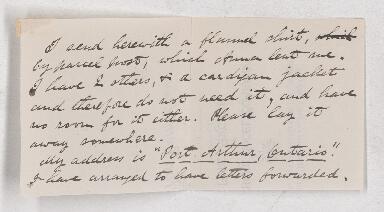 I send herewith a flannel shirt, which
by parcel post, which Anna lent me.
I have 2 others, & a cardigan jacket
and therefore do not need it, and have
no room for it either. Please lay it
away somewhere.
My address is "Port Arthur, Ontario."
I have arranged to have letters forwarded.